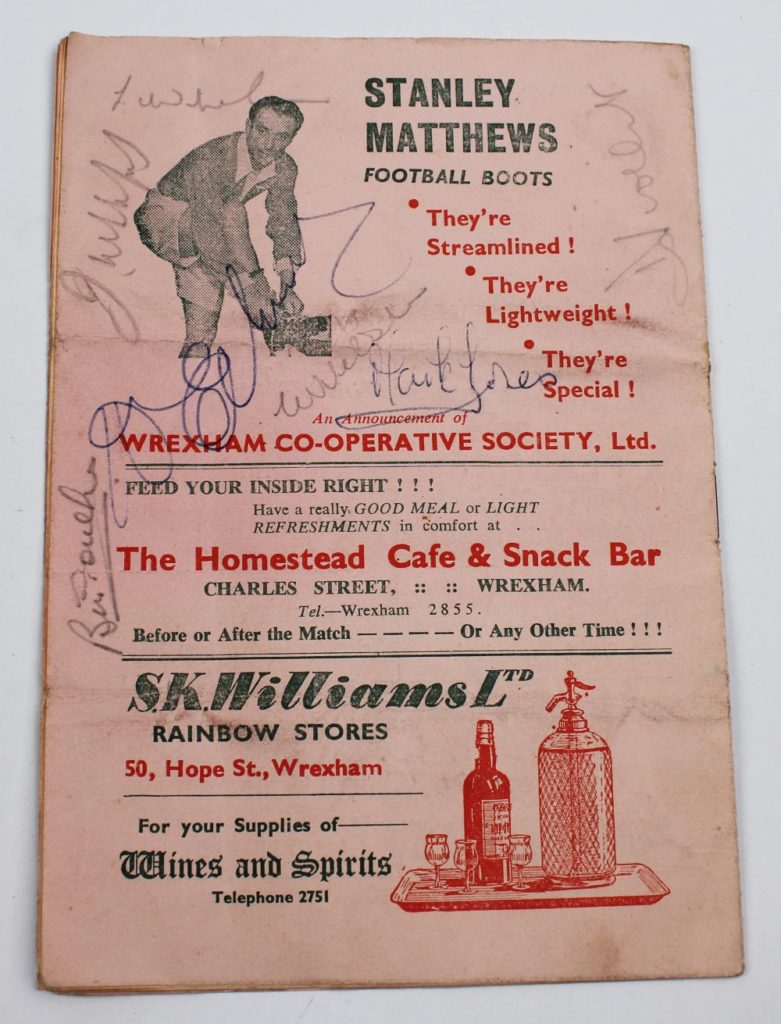 STANLEY
MATTHEWS
FOOTBALL BOOTS
• They're
Streamlined !
• They're
Lightweight !
• They're
Special !
An Announcement of
WREXHAM CO-OPERATIVE SOCIETY, Ltd.
FEED YOUR INSIDE RIGHT ! ! !
Have a really GOOD MEAL or LIGHT
REFRESHMENTS in comfort at . .
The Homestead Cafe & Snack Bar
CHARLES STREET, :: :: WREXHAM.
Tel.—Wrexham 2855.
Before or After the Match — — — — Or Any Other Time ! ! !
S.K. Williams LTD
RAINBOW STORES
50, Hope St., Wrexham
For your Supplies of—
Wines and Spirits
Telephone 2751